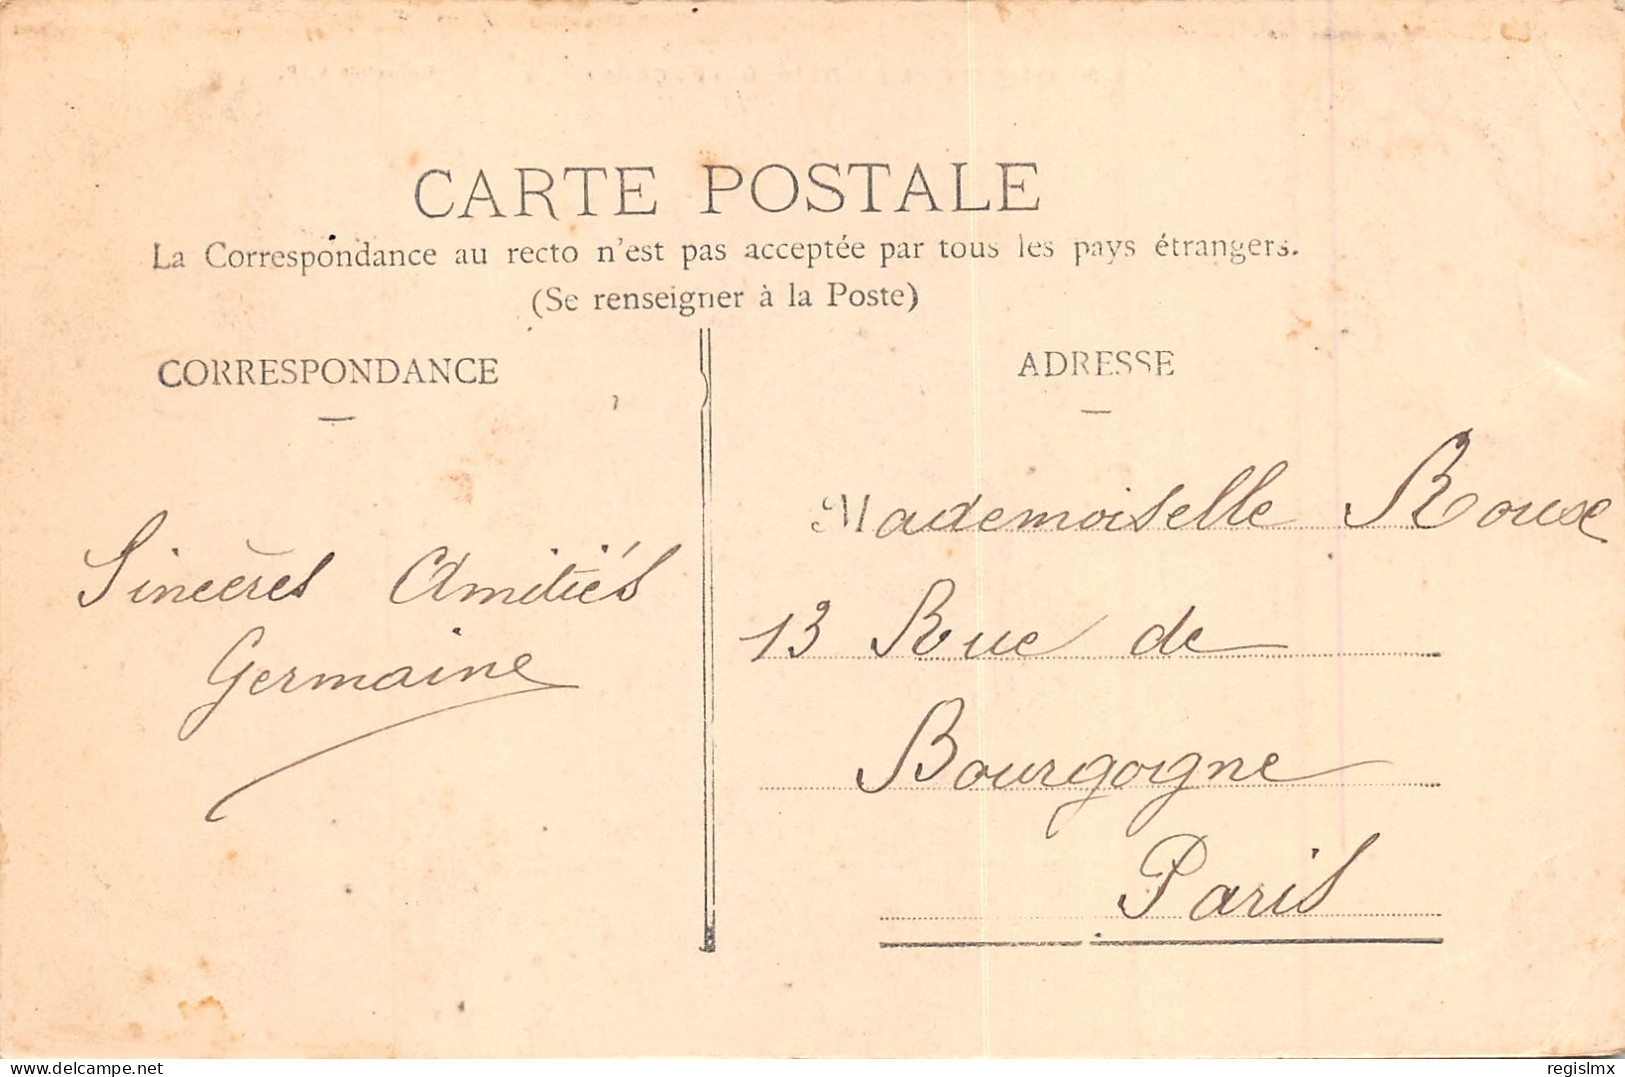 CARTE POSTALE
La Correspondance au recto n'est pas acceptée par tous les pays étrangers.
(Se renseigner à la Poste)
CORRESPONDANCE
Sincères Amitiés
Germaine
ADRESSE
Mademoiselle Roux
13 Rue de
Bourgogne
Paris
delcampe.net
regislmx